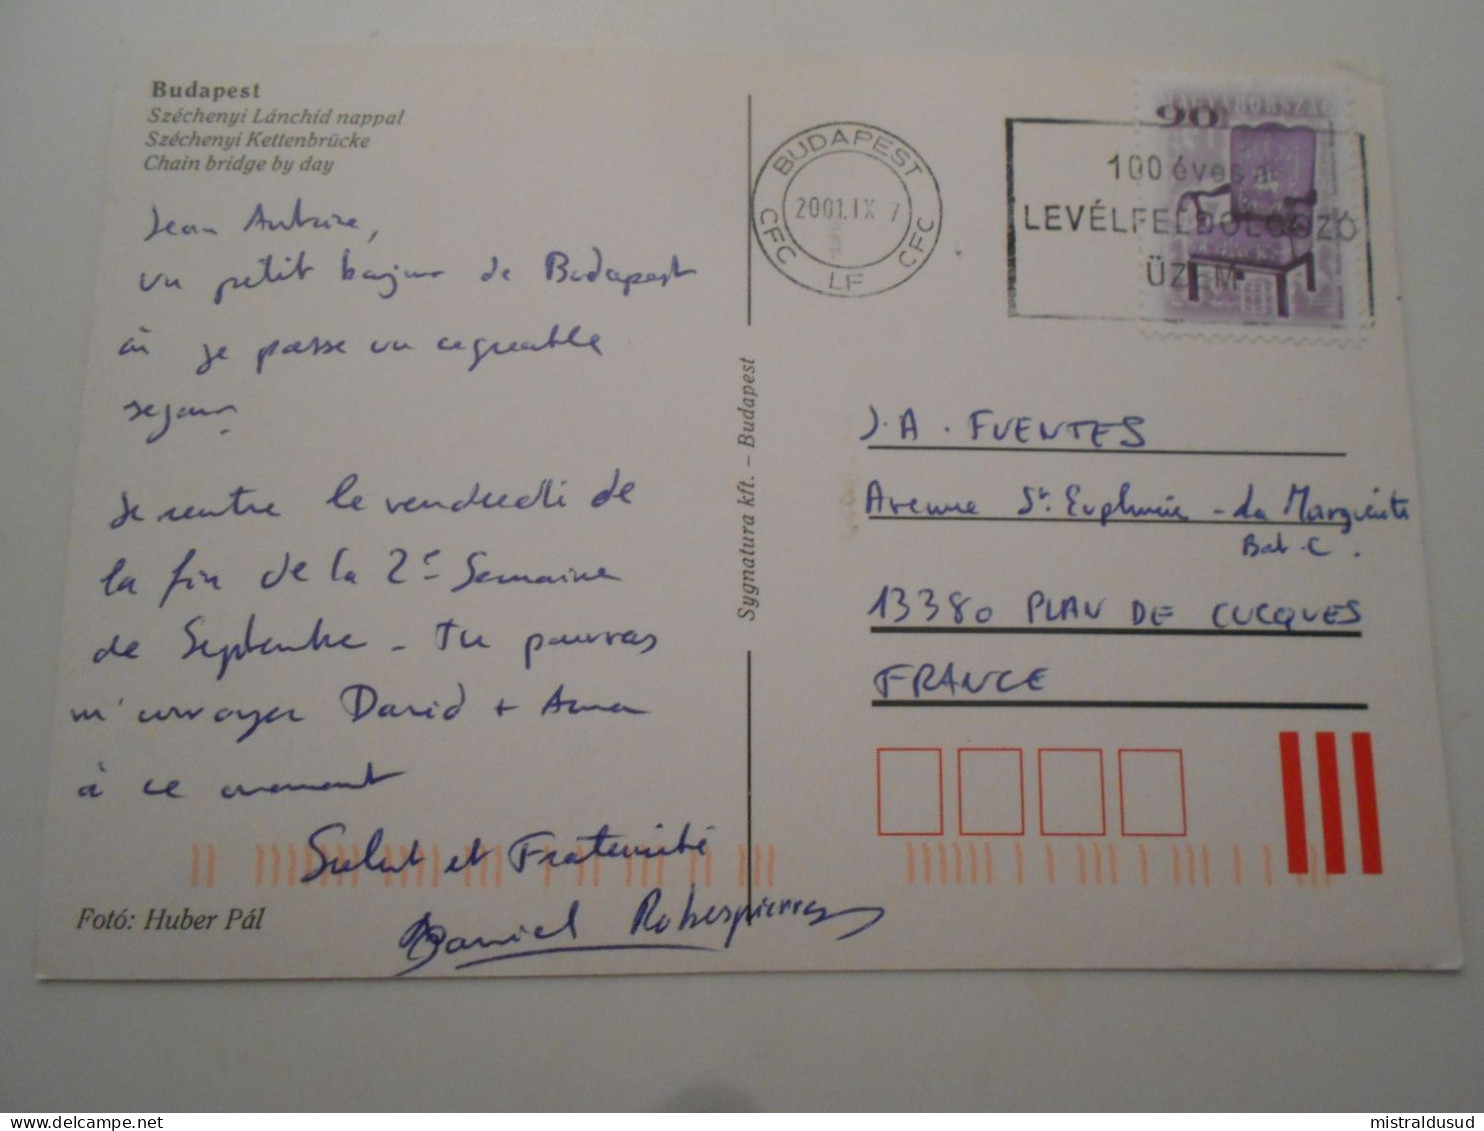 Budapest
Széchenyi Lánchíd nappal
Széchenyi Kettenbrücke
Chain bridge by day
Jean Antoine,
un petit bonjour de Budapest
où je passe un agréable
séjour.
Je rentre le vendredi de
la fin de la 2e Semaine
de Septembre - Tu pourras
m'envoyer David + Anna
à ce moment
Salut et Fraternité
Daniel Robespierre
Fotó: Huber Pál
Sygnatura kft. – Budapest
BUDAPEST
2001.IX 7
CFC LF CFC
MAGYARORSZÁG
90
100 éves a
LEVÉLFELDOLGOZÓ
ÜZEM
J.A. FUENTES
Avenue Ste Euphémie - La Marguerite
Bat. C.
13380 PLAN DE CUCQUES
FRANCE
mistraldusud